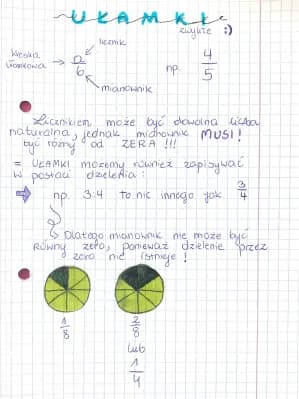 UŁAMKI
zwykłe :)
licznik
kreska
ułamkowa → a/b
np. 4/5
mianownik
Licznikiem może być dowolna liczba
naturalna, jednak mianownik MUSI!
być różny od ZERA !!!
= UŁAMKI możemy również zapisywać
w postaci dzielenia:
np. 3:4 to nic innego jak 3/4
Dlatego mianownik nie może być
równy zero, ponieważ dzielenie przez
zero nie istnieje!
1/8
2/8
lub
1/4